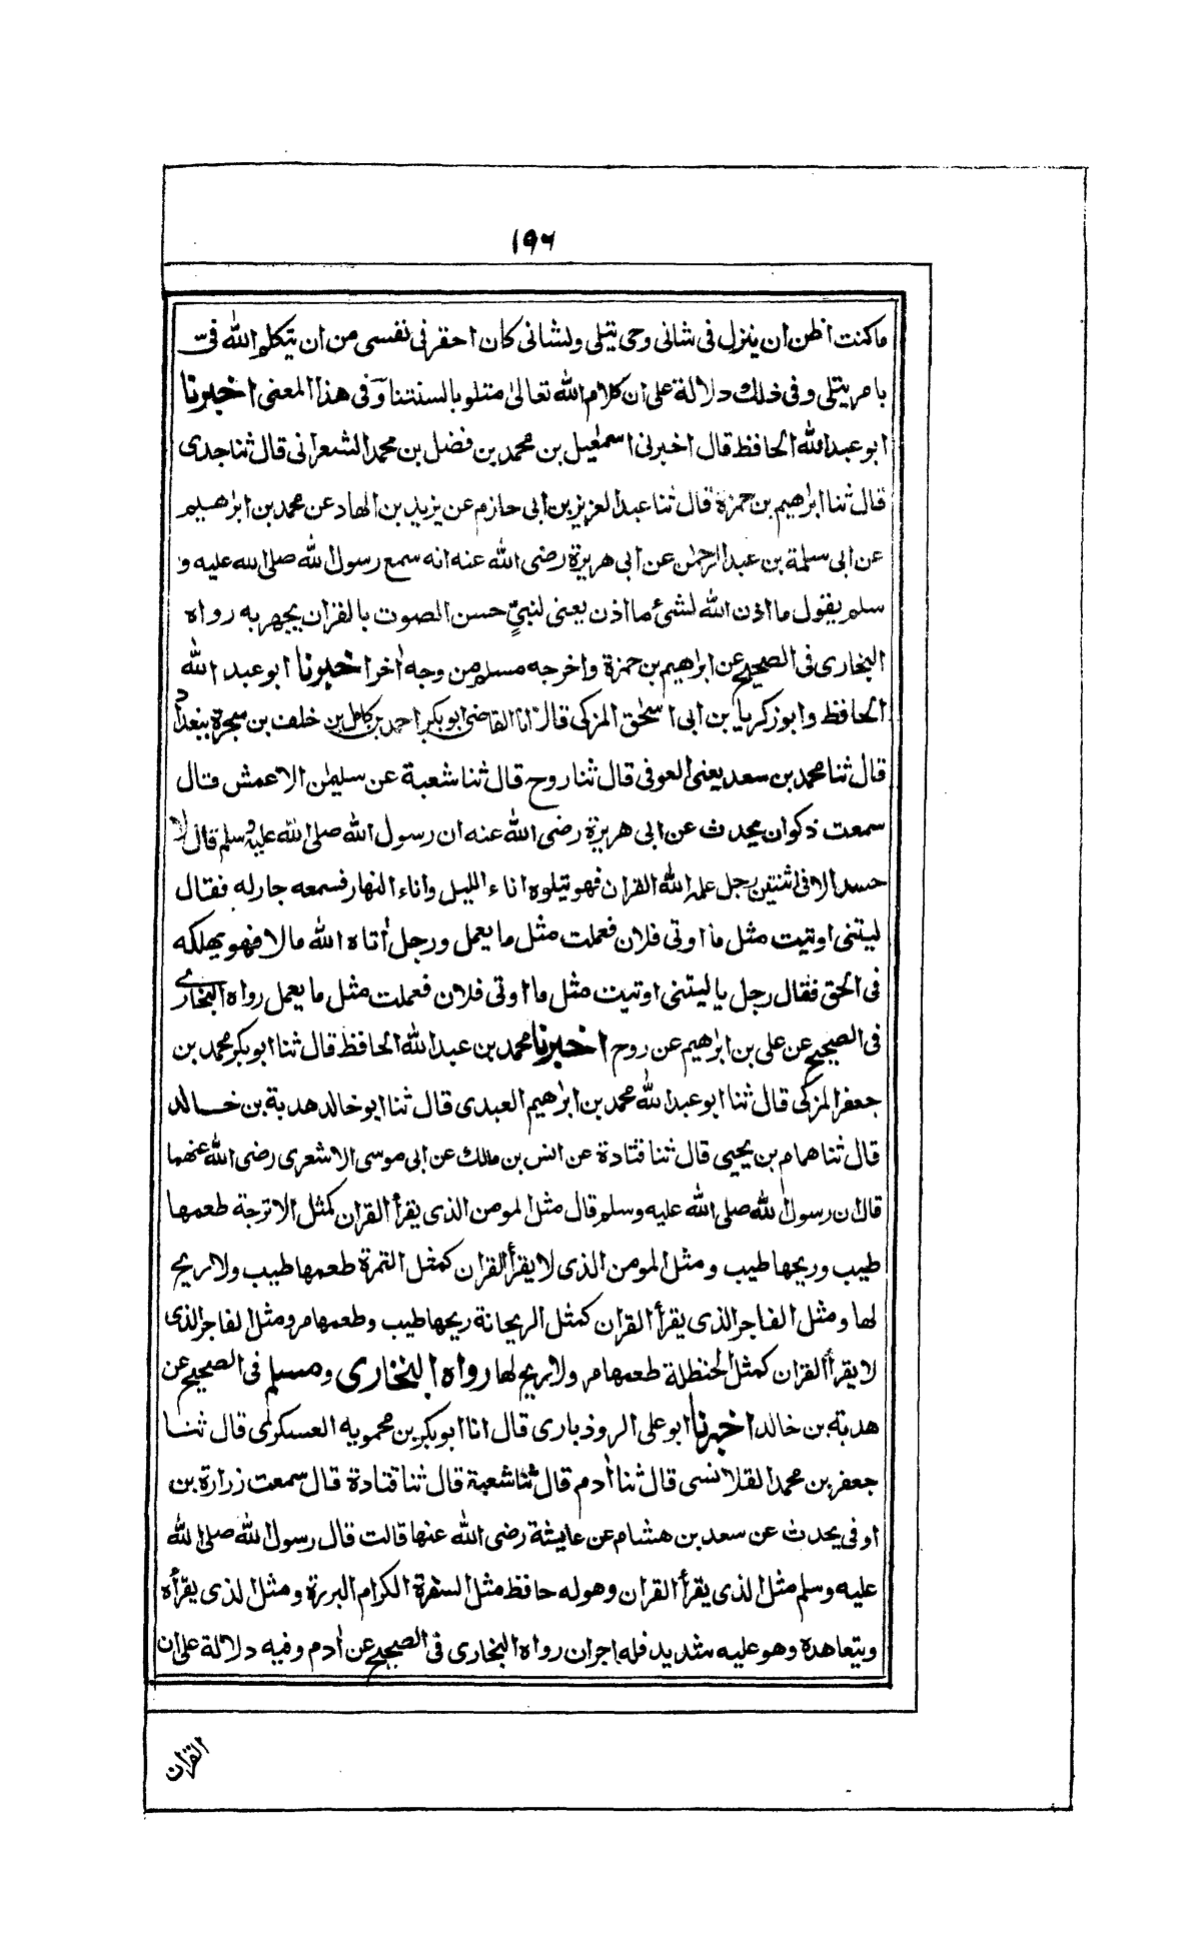 ١٩٦
ما كنت اظن ان ينزل فى شانى وحى يتلى ولشانى كان احقر فى نفسى من ان يتكلم الله فىّ
بامر يتلى وفى ذلك دلالة على ان كلام الله تعالىٰ متلو بالسنتنا وفى هذا المعنى اخبرنا
ابو عبد الله الحافظ قال اخبرنى اسمٰعيل بن محمد بن فضل بن محمد الشعرانى قال ثنا جدى
قال ثنا ابرٰهيم بن حمزة قال ثنا عبد العزيز بن ابى حازم عن يزيد بن الهاد عن محمد بن ابرٰهيم
عن ابى سلمة بن عبد الرحمٰن عن ابى هريرة رضى الله عنه انه سمع رسول الله صلى الله عليه و
سلم يقول ما اذن الله لشئ ما اذن يعنى لنبىٍّ حسن الصوت بالقران يجهر به رواه
البخارى فى الصحيح عن ابراهيم بن حمزة واخرجه مسلم من وجه اٰخر اخبرنا ابو عبد الله
الحافظ وابو زكريا بن ابى اسحٰق المزكى قال انا القاضى ابوبكر احمد بن كامل بن خلف بن سجرة ببغداد
قال ثنا محمد بن سعد يعنى العوفى قال ثنا روح قال ثنا شعبة عن سليمٰن الاعمش قال
سمعت ذكوان يحدث عن ابى هريرة رضى الله عنه ان رسول الله صلى الله عليه وسلم قال لا
حسد الا فى اثنتين رجل علمه الله القران فهو يتلوه اناء الليل واناء النهار فسمعه جار له فقال
ليتنى اوتيت مثل ما اوتى فلان فعملت مثل ما يعمل ورجل أتاه الله مالا فهو يهلكه
فى الحق فقال رجل يا ليتنى اوتيت مثل ما اوتى فلان فعملت مثل ما يعمل رواه البخارى
فى الصحيح عن على بن ابرٰهيم عن روح اخبرنا محمد بن عبد الله الحافظ قال ثنا ابوبكر محمد بن
جعفر المزكى قال ثنا ابو عبد الله محمد بن ابرٰهيم العبدى قال ثنا ابو خالد هدبة بن خالد
قال ثنا همام بن يحيى قال ثنا قتادة عن انس بن مالك عن ابى موسى الاشعرى رضى الله عنهما
قال ان رسول الله صلى الله عليه وسلم قال مثل المومن الذى يقرأ القران كمثل الاترجة طعمها
طيب وريحها طيب ومثل المومن الذى لا يقرأ القران كمثل التمرة طعمها طيب ولا ريح
لها ومثل الفاجر الذى يقرأ القران كمثل الريحانة ريحها طيب وطعمها مر ومثل الفاجر الذى
لا يقرأ القران كمثل الحنظلة طعمها مر ولا ريح لها رواه البخارى ومسلم فى الصحيح عن
هدبة بن خالد اخبرنا ابو على الروذبارى قال انا ابوبكر بن محمويه العسكرى قال ثنا
جعفر بن محمد القلانسى قال ثنا اٰدم قال ثنا شعبة قال ثنا قتادة قال سمعت زرارة بن
اوفى يحدث عن سعد بن هشام عن عايشة رضى الله عنها قالت قال رسول الله صلى الله
عليه وسلم مثل الذى يقرأ القران وهو له حافظ مثل السفرة الكرام البررة ومثل الذى يقرأه
ويتعاهده وهو عليه شديد فله اجران رواه البخارى فى الصحيح عن اٰدم وفيه دلالة على ان
القران